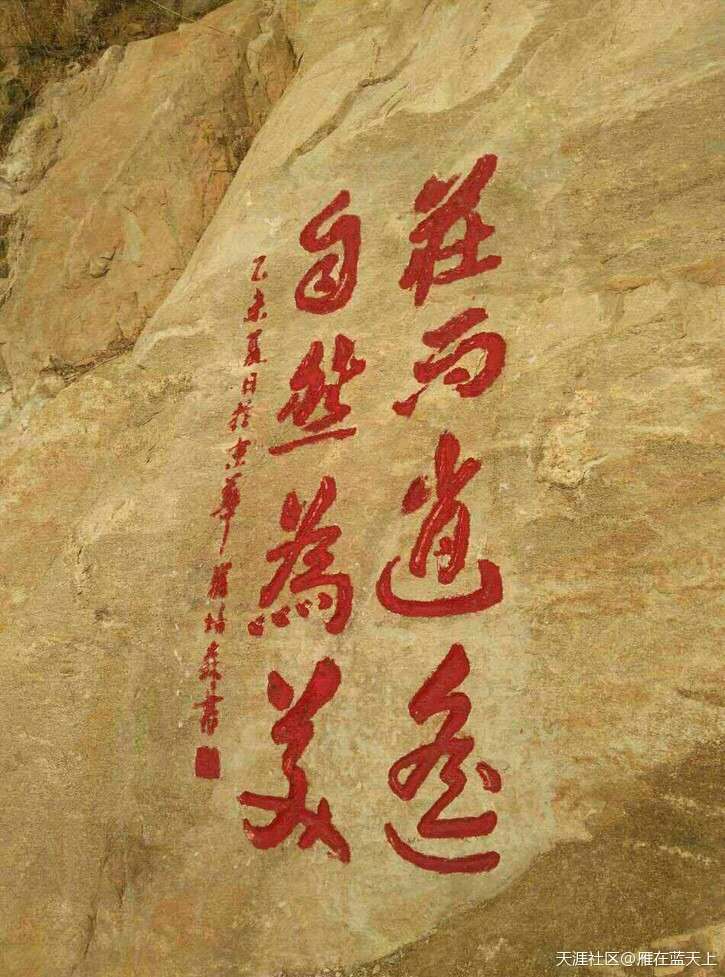 莊而逍遥
自然為美
乙未夏日於京華 培森書
天涯社区@雁在蓝天上